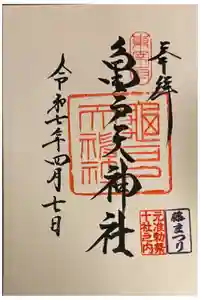 奉拝
亀戸天神社
令和七年四月七日
東宰府
亀戸
天神社
藤まつり
元准勅祭
十社之内